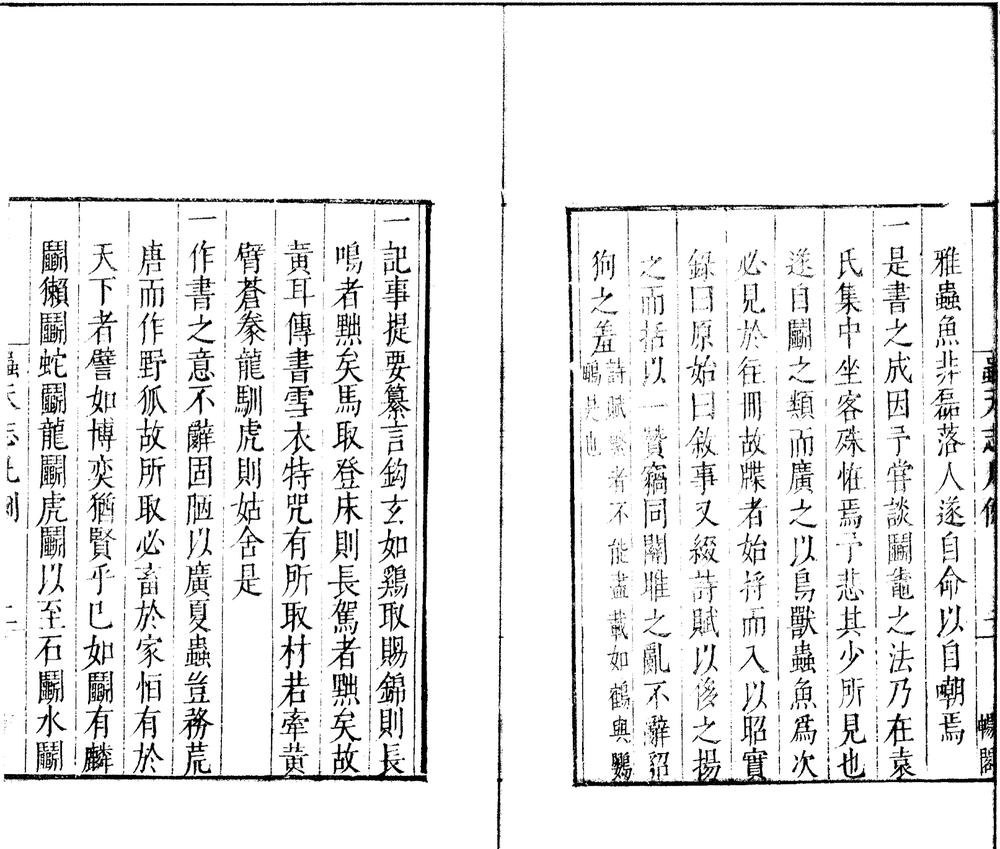 蟲天志凡例 暢閣
雅蟲魚非磊落人遂自命以自嘲焉
一是書之成因予嘗談鬭鼃之法乃在袁
氏集中坐客殊恠焉予悲其少所見也
遂自鬭之類而廣之以鳥獸蟲魚爲次
必見於往冊故牒者始捋而入以昭實
錄曰原始曰敘事又綴詩賦以後之揚
之而括以一贊竊同關雎之亂不辭貂
狗之羞詩賦繁者不能盡載如鶴與鸚
鵡是也
一記事提要纂言鈎玄如鷄取賜錦則長
鳴者黜矣馬取登床則長駕者黜矣故
黃耳傳書雪衣持咒有所取材若牽黃
臂蒼豢龍馴虎則姑舍是
一作書之意不辭固陋以廣夏蟲豈務荒
唐而作野狐故所取必畜於家恒有於
天下者譬如博奕猶賢乎已如鬭有麟
鬭獺鬭蛇鬭龍鬭虎鬭以至石鬭水鬭
蟲天志凡例 二